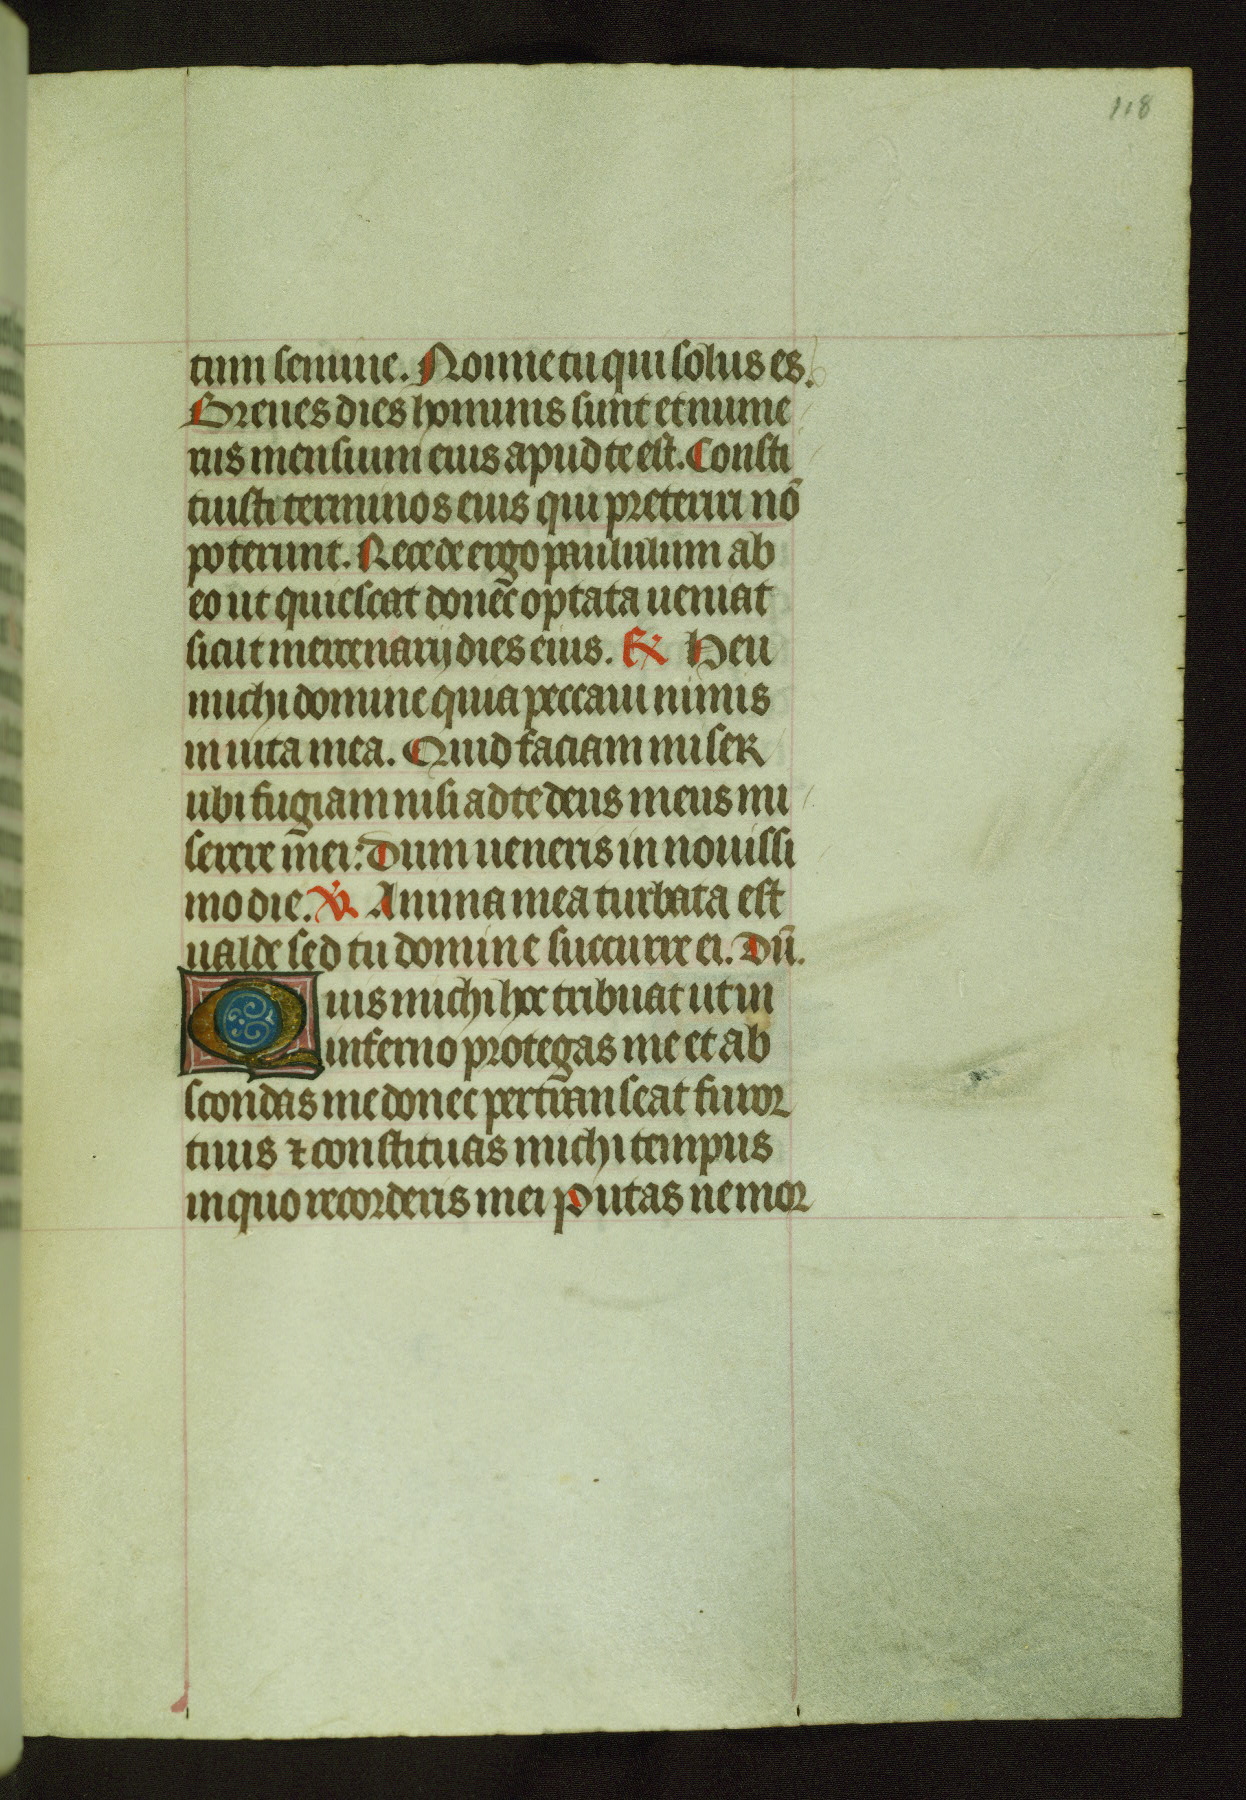 118
tum semine. Nonne tu qui solus es.
Breues dies hominis sunt et nume
rus mensium eius apud te est. Consti
tuisti terminos eius qui preteriri nō
poterunt. Recede ergo paululum ab
eo ut quiescat donec̄ optata ueniat
sicut mercenarij dies eius. R Heu
michi domine quia peccaui nimis
in uita mea. Quid faciam miser
ubi fugiam nisi ad te deus meus mi
serere m̄ei: Dum ueneris in nouissi
mo die. V Anima mea turbata est
ualde sed tu domine succurre ei. Dū.
Quis michi hoc tribuat ut in
inferno protegas me et ab
scondas me donec pertranseat furor
tuus ⁊ constituas michi tempus
in quo recorderis mei Putas ne mor